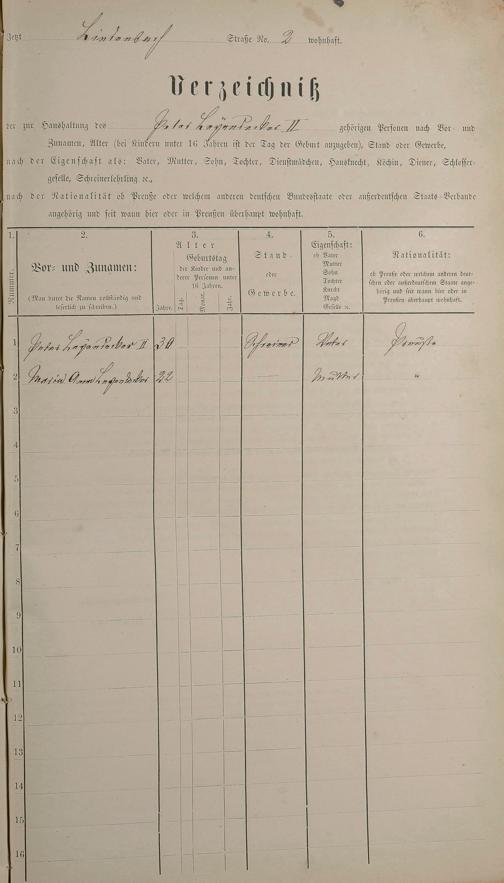 Jetzt Lindenbach Straße No. 2 wohnhaft.
Verzeichniß
der zur Haushaltung des Peter Leyendecker II gehörigen Personen nach Vor- und
Zunamen, Alter (bei Kindern unter 16 Jahren ist der Tag der Geburt anzugeben), Stand oder Gewerbe,
nach der Eigenschaft als: Vater, Mutter, Sohn, Tochter, Dienstmädchen, Hausknecht, Köchin, Diener, Schlosser-
geselle, Schreinerlehrling ꝛc.,
nach der Nationalität ob Preuße oder welchem anderen deutschen Bundesstaate oder außerdeutschen Staats-Verbande
angehörig und seit wann hier oder in Preußen überhaupt wohnhaft.
1.
Nummer.
2.
Vor- und Zunamen:
(Man bittet die Namen vollständig und
leserlich zu schreiben.)
3.
Alter
Jahre.
Geburtstag
der Kinder und an-
derer Personen unter
16 Jahren.
Tag.
Monat.
Jahr.
4.
Stand
oder
Gewerbe.
5.
Eigenschaft:
ob Vater
Mutter
Sohn
Tochter
Knecht
Magd
Geselle ꝛc.
6.
Nationalität:
ob Preuße oder welchem anderen deut-
schen oder außerdeutschen Staate ange-
hörig und seit wann hier oder in
Preußen überhaupt wohnhaft.
1 Peter Leyendecker II 30 Schreiner Vater Preuße
2 Maria Anna Leyendecker 22 — Mutter "
3
4
5
6
7
8
9
10
11
12
13
14
15
16